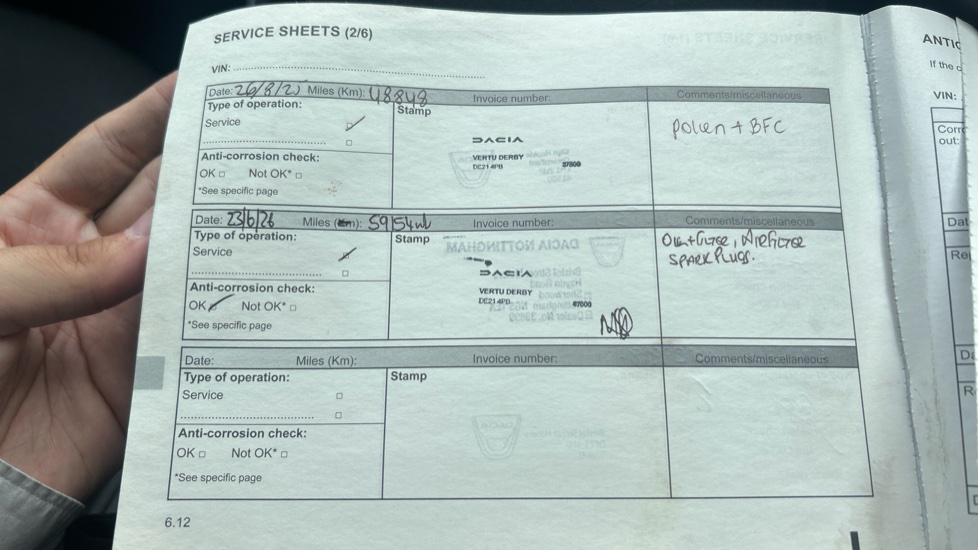 SERVICE SHEETS (2/6)
VIN:
Date: 26/8/25 Miles (Km): 48848 Invoice number: Comments/miscellaneous
Type of operation:
Stamp
Service
pollen + BFC
DACIA
VERTU DERBY
DE21 4PB
Anti-corrosion check:
OK Not OK*
*See specific page
Date: 23/6/26 Miles (Km): 59154 Invoice number: Comments/miscellaneous
Type of operation:
Stamp
Oil + Filter, Air Filter
Service
SPARK PLUGS.
DACIA
VERTU DERBY
DE21 4PB
Anti-corrosion check:
OK Not OK*
*See specific page
Date: Miles (Km): Invoice number: Comments/miscellaneous
Type of operation:
Stamp
Service
Anti-corrosion check:
OK Not OK*
*See specific page
6.12
If the
VIN:
out: